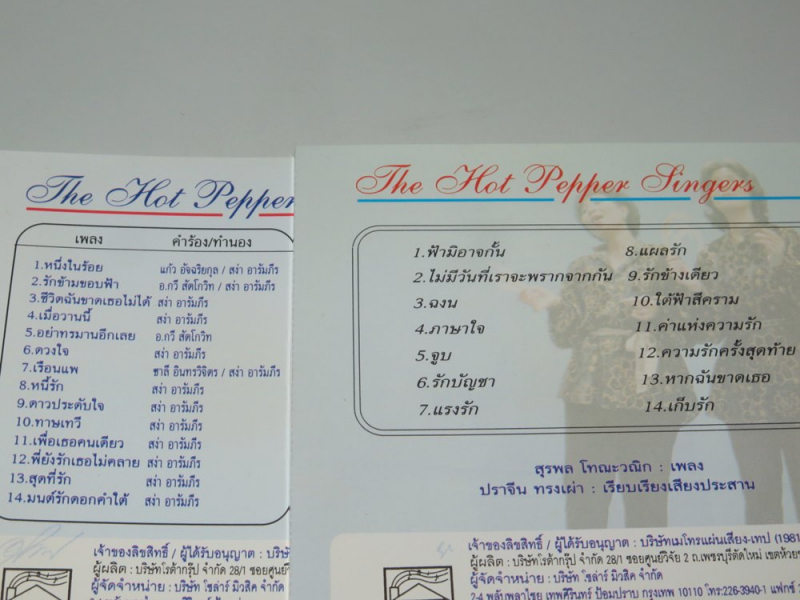 The Hot Pepper
เพลง คำร้อง/ทำนอง
1.หนึ่งในร้อย แก้ว อัจฉริยกุล / สง่า อารัมภีร
2.รักข้ามขอบฟ้า อ.กวี สัตโกวิท / สง่า อารัมภีร
3.ชีวิตฉันขาดเธอไม่ได้ สง่า อารัมภีร
4.เมื่อวานนี้ สง่า อารัมภีร
5.อย่าทรมานอีกเลย อ.กวี สัตโกวิท
6.ดวงใจ สง่า อารัมภีร
7.เรือนแพ ชาลี อินทรวิจิตร / สง่า อารัมภีร
8.หนี้รัก สง่า อารัมภีร
9.ดาวประดับใจ สง่า อารัมภีร
10.ทาษเทวี สง่า อารัมภีร
11.เพื่อเธอคนเดียว สง่า อารัมภีร
12.พี่ยังรักเธอไม่คลาย สง่า อารัมภีร
13.สุดที่รัก สง่า อารัมภีร
14.มนต์รักดอกคำใต้ สง่า อารัมภีร
เจ้าของลิขสิทธิ์ / ผู้ได้รับอนุญาต : บริษั
ผู้ผลิต : บริษัทโรต้ากรุ๊ป จำกัด 28/1 ซอยศูนย์
ผู้จัดจำหน่าย : บริษัท โซล่าร์ มิวสิค จำกัด
The Hot Pepper Singers
1.ฟ้ามิอาจกั้น
2.ไม่มีวันที่เราจะพรากจากกัน
3.ฉงน
4.ภาษาใจ
5.จูบ
6.รักบัญชา
7.แรงรัก
8.แผลรัก
9.รักข้างเดียว
10.ใต้ฟ้าสีคราม
11.ค่าแห่งความรัก
12.ความรักครั้งสุดท้าย
13.หากฉันขาดเธอ
14.เก็บรัก
สุรพล โทณะวณิก : เพลง
ปราจีน ทรงเผ่า : เรียบเรียงเสียงประสาน
เจ้าของลิขสิทธิ์ / ผู้ได้รับอนุญาต : บริษัทเมโทรแผ่นเสียง-เทป (1981
ผู้ผลิต : บริษัทโรต้ากรุ๊ป จำกัด 28/1 ซอยศูนย์วิจัย 2 ถ.เพชรบุรีตัดใหม่ เขตห้วย
ผู้จัดจำหน่าย : บริษัท โซล่าร์ มิวสิค จำกัด
2-4 พลับพลาไชย เทพศิรินทร์ ป้อมปราบ กรุงเทพ 10110 โทร:226-3940-1 แฟกซ์